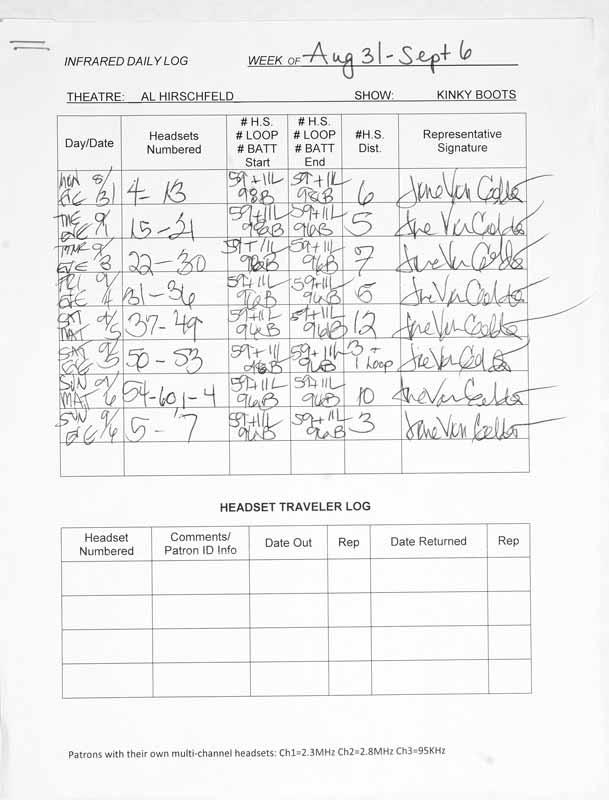 INFRARED DAILY LOG WEEK OF Aug 31 - Sept 6
THEATRE: AL HIRSCHFELD SHOW: KINKY BOOTS
Day/Date Headsets Numbered # H.S. # LOOP # BATT Start # H.S. # LOOP # BATT End #H.S. Dist. Representative Signature
MON 8/31 EVE 4 - 13 59 + 11L 98B 59 + 11L 98B 6 Jane Van Gelder
TUE 9/1 EVE 15 - 21 59 + 11L 98B 59 + 11L 96B 5 Jane Van Gelder
9/3 EVE 22 - 30 59 + 11L 96B 59 + 11L 96B 7 Jane Van Gelder
FRI 9/4 EVE 31 - 36 59 + 11L 96B 59 + 11L 96B Jane Van Gelder
SAT 9/5 MAT 37 - 49 59 + 11L 96B 59 + 11L 96B 12 Jane Van Gelder
SAT 9/5 EVE 50 - 53 59 + 11L 96B 59 + 11L 96B 3 + 1 Loop Jane Van Gelder
SUN 9/6 MAT 54 - 60 1 - 4 59 + 11L 96B 59 + 11L 96B 10 Jane Van Gelder
SUN 9/6 EVE 5 - 7 59 + 11L 96B 59 + 11L 96B 3 Jane Van Gelder
HEADSET TRAVELER LOG
Headset Numbered Comments/ Patron ID Info Date Out Rep Date Returned Rep
Patrons with their own multi-channel headsets: Ch1=2.3MHz Ch2=2.8MHz Ch3=95KHz